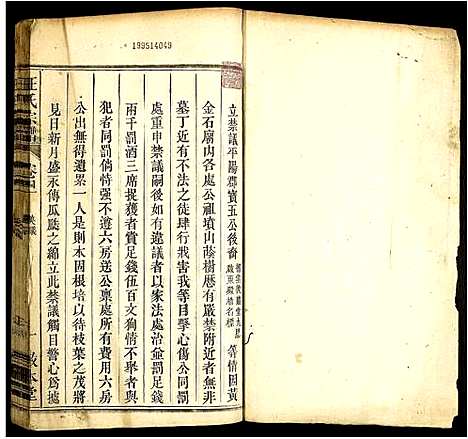 199514049
立禁議平陽郡寶五公後裔 等情因黃
金石廟內各處公祖墳山蔭樹歷有嚴禁附近者無非
墓丁近有不法之徒肆行戕害我等目擊心傷公同禁
處重申禁議嗣後如有違議者以家法處治爺罰足錢
兩千罰酒三席捉獲者賞足錢伍百文狥情不舉者與
犯者同罰倘恃強不遵六房送公稟處所有費用六房
公出無得遺累一人是則本固根培以待枝葉之茂將
見日新月盛永傳瓜瓞之綿立此禁議觸目警心爲據
汪氏宗譜
卷四
禁議
一
敘本堂